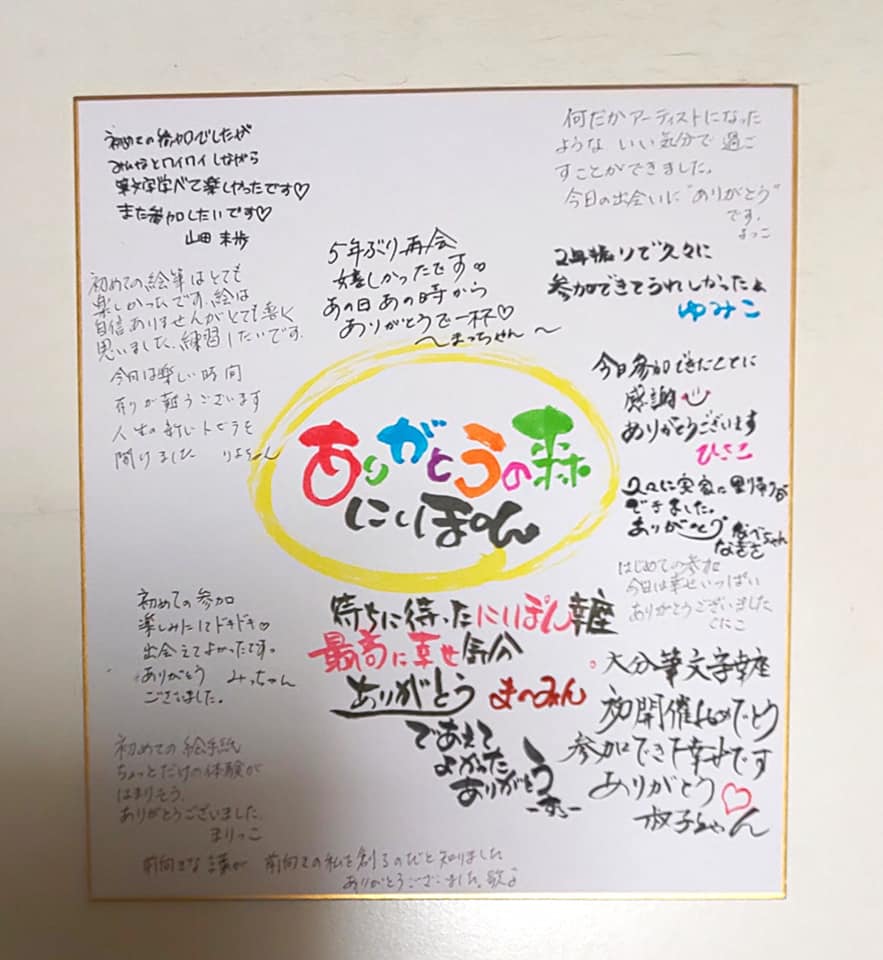 初めての参加でしたが
みんなとワイワイしながら
筆文字学べて楽しかったです♡
また参加したいです♡
山田 未歩
何だかアーティストになった
ような いい気分で 過ご
すことができました。
今日の出会いに"ありがとう"
です。
よっこ
5年ぶり再会
嬉しかったです♡
あの日あの時から
ありがとうで一杯♡
〜まっちゃん〜
2年振りで久々に
参加できてうれしかったよ
ゆみこ
初めての絵筆はとても
楽しかったです。絵は
自信ありませんがとても
思いました、練習したいです。
今日は楽しい時間
有りが難うございます
人生の新しいトビラを
開けました りよちゃん
今日参加できたことに
感謝
ありがとうございます
ひさこ
ありがとうの森
にいぽん
久々に実家に里帰りが
できました。
ありがとう なべちゃん
なぎさ
はじめての参加
今日は幸せいっぱい
ありがとうございました
くにこ
初めての参加
楽しみにしてドキドキ♡
出会えてよかったです。
ありがとう みっちゃん
ございました。
待ちに待ったにいぽん講座
最高に幸せ気分
ありがとう まーみん
であえて
よかった
ありがとう
大分筆文字講座
初開催おめでとう
参加できて幸せです
ありがとう♡
淑子ちゃん
初めての絵手紙
ちょっとだけの体験が
はまりそう。
ありがとうございました。
まりっこ
前向きな言葉が 前向きの私を創るのだと知りました
ありがとうございました。